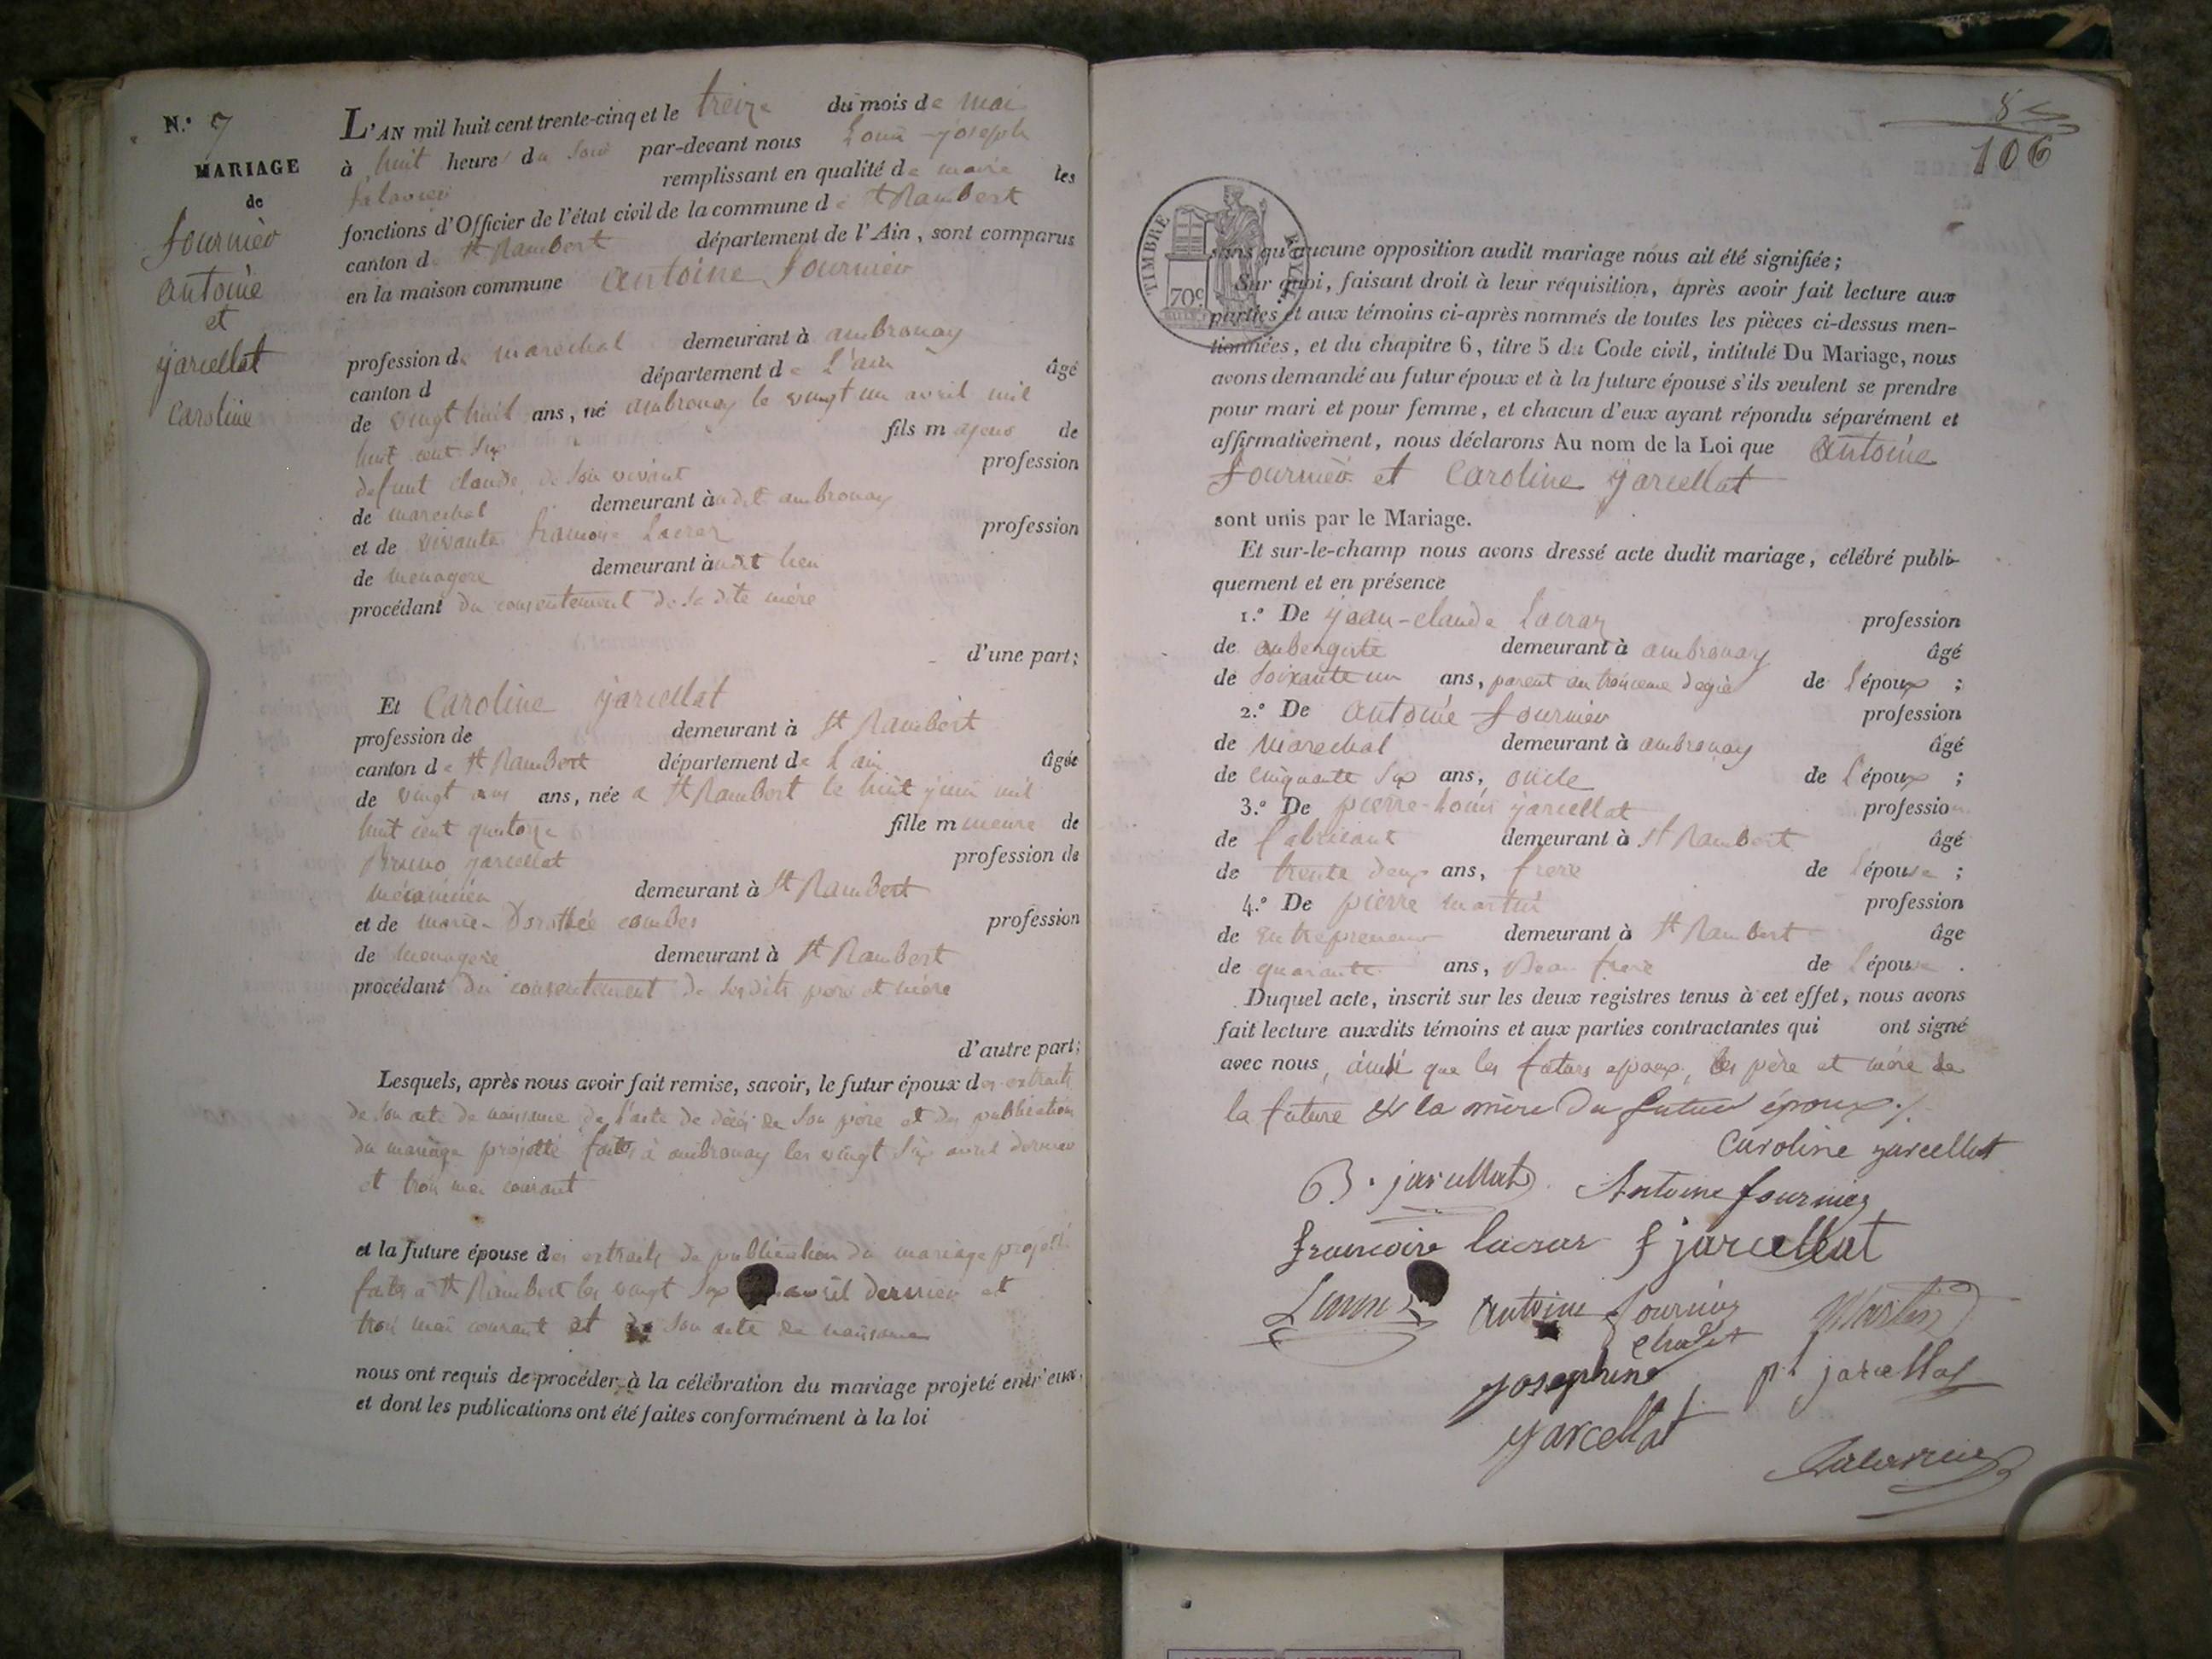 N.º 7
MARIAGE
de
fournier
antoine
et
jarcellat
Caroline
L'AN mil huit cent trente-cinq et le treize du mois de mai
à huit heures du soir par-devant nous Louis-joseph
remplissant en qualité de maire les
fonctions d'Officier de l'état civil de la commune de St Rambert
canton de St Rambert département de l'Ain, sont comparus
en la maison commune antoine fournier
profession de marechal demeurant à ambronay
canton d département de L'ain âgé
de vingt huit ans, né ambronay le vingt un avril mil
huit cent six fils majeur de
defunt claude de son vivant profession
de marechal demeurant àudit ambronay
et de vivante francoise Lacraz profession
de menagere demeurant àudit lieu
procédant du consentement de sa dite mère
d'une part;
Et Caroline jarcellat
profession de demeurant à St Rambert
canton de St Rambert département de L'ain âgée
de vingt ans ans, née a St Rambert le huit juin mil
huit cent quatorze fille mineure de
Bruno jarcellat profession de
mécanicien demeurant à St Rambert
et de marie Dorothée combes profession
de menagere demeurant à St Rambert
procédant du consentement de sesdits père et mère
d'autre part;
Lesquels, après nous avoir fait remise, savoir, le futur époux des extraits
de son acte de naissance de l'acte de décès de son père et des publication
du mariage projetté faites à ambronay les vingt six avril dernier
et trois mai courant
et la future épouse des extraits de publication du mariage projetté
faites a St Rambert les vingt six avril dernier et
trois mai courant et de son acte de naissance
nous ont requis de procéder à la célébration du mariage projeté entr'eux,
et dont les publications ont été faites conformément à la loi
106
TIMBRE ROYAL
70c
sans qu'aucune opposition audit mariage nous ait été signifiée;
Sur quoi, faisant droit à leur réquisition, après avoir fait lecture aux
parties et aux témoins ci-après nommés de toutes les pièces ci-dessus men-
tionnées, et du chapitre 6, titre 5 du Code civil, intitulé Du Mariage, nous
avons demandé au futur époux et à la future épouse s'ils veulent se prendre
pour mari et pour femme, et chacun d'eux ayant répondu séparément et
affirmativement, nous déclarons Au nom de la Loi que antoine
fournier et Caroline jarcellat
sont unis par le Mariage.
Et sur-le-champ nous avons dressé acte dudit mariage, célébré publi-
quement et en présence
1.º De jean-claude Lacraz profession
de aubergiste demeurant à ambronay âgé
de soixante un ans, parent au troisieme degré de l'époux ;
2.º De antoine fournier profession
de marechal demeurant à ambronay âgé
de cinquante six ans, oncle de l'époux ;
3.º De pierre-Louis jarcellat profession
de fabricant demeurant à St Rambert âgé
de trente deux ans, frere de l'épouse ;
4.º De pierre martin profession
de entrepreneur demeurant à St Rambert âge
de quarante ans, Beau frere de l'épouse .
Duquel acte, inscrit sur les deux registres tenus à cet effet, nous avons
fait lecture auxdits témoins et aux parties contractantes qui ont signé
avec nous, ainsi que les futurs epoux, les père et mère de
la future & la mère du futur époux ./.
Caroline jarcellat
B. jarcellat Antoine fournier
francoise lacraz f jarcellat
antoine fournier Martin
Josephine pl jarcellat
jarcellat